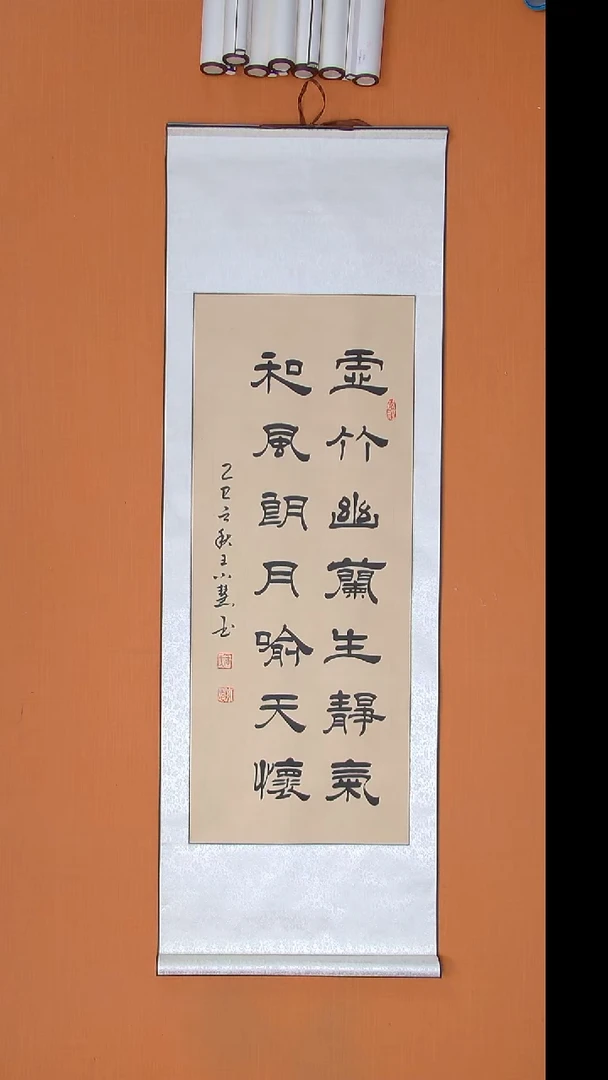 虛竹幽蘭生靜氣
和風朗月喻天懷
乙巳立秋王小慧书